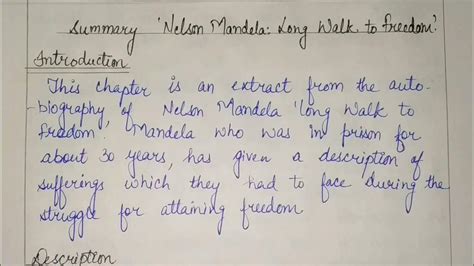 Summary 'Nelson Mandela: Long Walk to freedom'.
Introduction
This chapter is an extract from the auto-
-biography of Nelson Mandela 'long Walk to
freedom'. Mandela who was in prison for
about 30 years, has given a description of
sufferings which they had to face during the
struggle for attaining freedom
Description